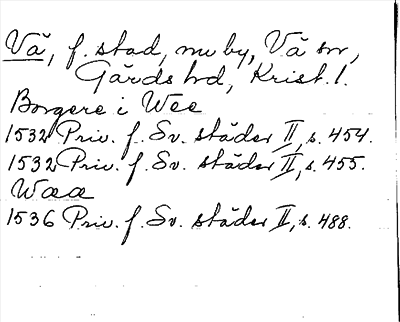 Vä, f. stad, nu by, Vä sn,
Gärds hd, Krist. l.
Borgere i Wee
1532 Priv. f. Sv. städer II, s. 454.
1532 Priv. f. Sv. städer II, s. 455.
Wææ
1536 Priv. f. Sv. städer II, s. 488.